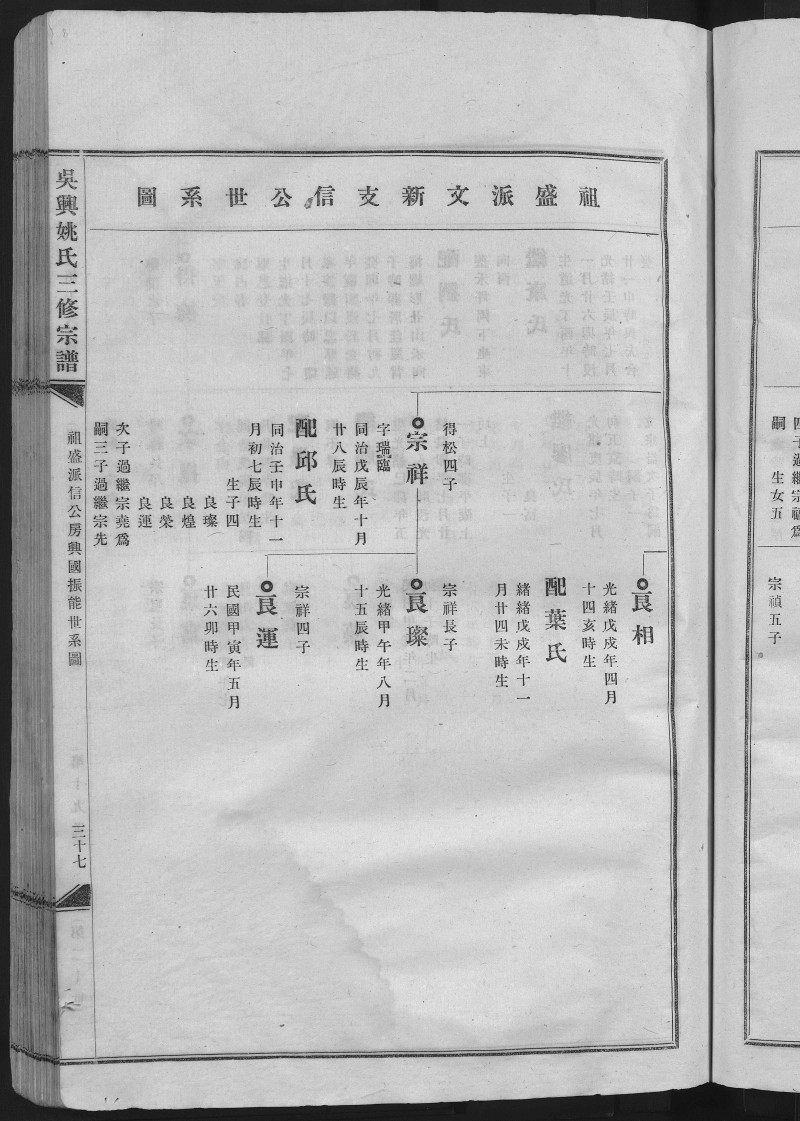 四子過繼宗禎爲
嗣　生女五
宗禎五子
祖盛派文新支信公世系圖
良相
光緒戊戌年四月
十四亥時生
配葉氏
緒緒戊戌年十一
月廿四未時生
得松四子
宗祥
字瑞臨
同治戊辰年十月
廿八辰時生
配邱氏
同治壬申年十一
月初七辰時生
生子四
良璨
良煌
良榮
良運
次子過繼宗堯爲
嗣三子過繼宗先
宗祥長子
良璨
光緒甲午年八月
十五辰時生
宗祥四子
良運
民國甲寅年五月
廿六卯時生
吳興姚氏三修宗譜
祖盛派信公房興國振能世系圖
三十七